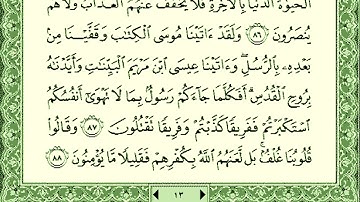 الْحَيَوٰةَ الدُّنْيَا بِالْآخِرَةِ فَلَا يُخَفَّفُ عَنْهُمُ الْعَذَابُ وَلَا هُمْ
يُنصَرُونَ ٨٦ وَلَقَدْ ءَاتَيْنَا مُوسَى الْكِتَٰبَ وَقَفَّيْنَا مِنۢ
بَعْدِهِۦ بِالرُّسُلِ وَءَاتَيْنَا عِيسَى ابْنَ مَرْيَمَ الْبَيِّنَٰتِ وَأَيَّدْنَٰهُ
بِرُوحِ الْقُدُسِ أَفَكُلَّمَا جَآءَكُمْ رَسُولٌۢ بِمَا لَا تَهْوَىٰٓ أَنفُسُكُمُ
اسْتَكْبَرْتُمْ فَفَرِيقًا كَذَّبْتُمْ وَفَرِيقًا تَقْتُلُونَ ٨٧ وَقَالُوا
قُلُوبُنَا غُلْفٌۢ بَل لَّعَنَهُمُ اللَّهُ بِكُفْرِهِمْ فَقَلِيلًا مَّا يُؤْمِنُونَ ٨٨
١٣